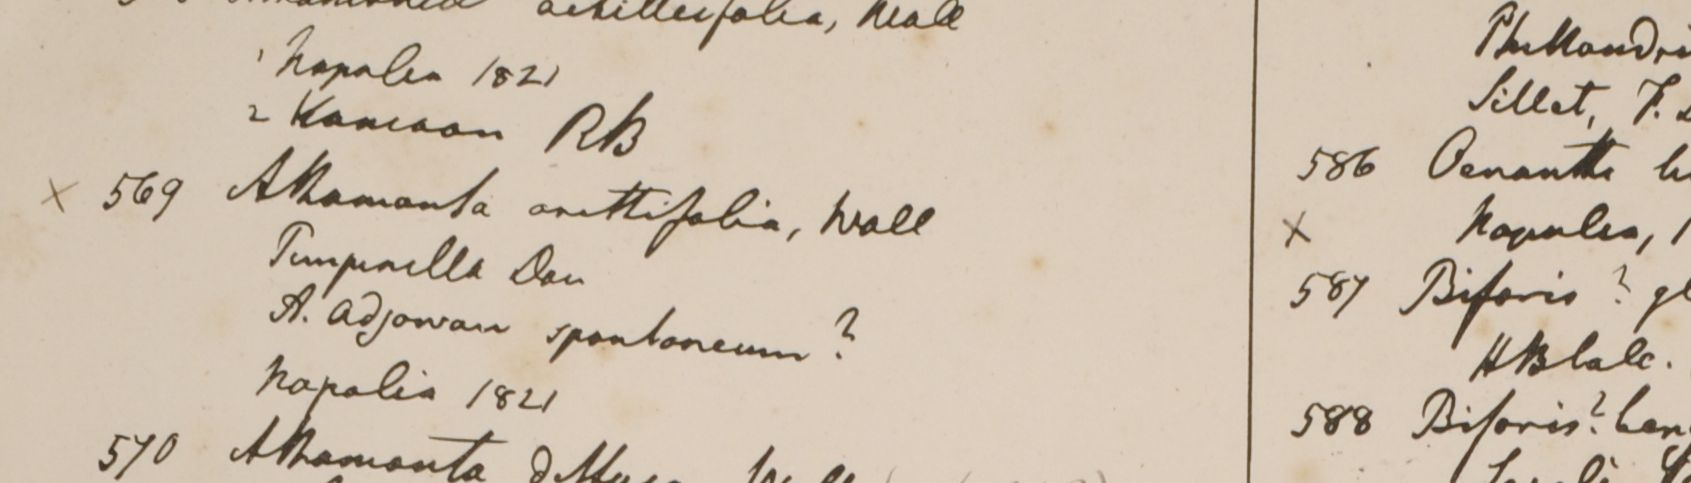 achilleifolia, Wall
1 Napalia 1821
2 Kamaon RB
× 569 Athamanta arittifolia, Wall
Pimpinella Don
A. Adjowan spontaneum?
Napalia 1821
570 Athamanta Wall
Sillet, F.
586 Oenanthe
× Napalia, 1
587 Biforis ?
HBCalc.
588 Biforis?